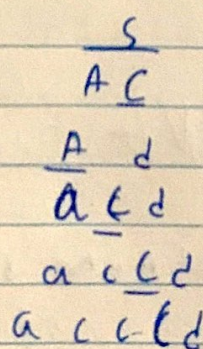 S
A C
A d
a C d
a c C d
a c c C d